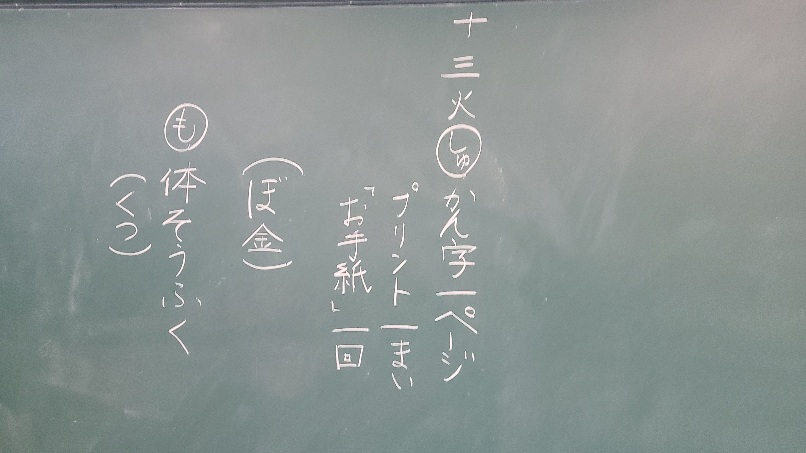 十三火 しゅ かん字一ページ
プリント一まい
「お手紙」一回
（ぼ金）
も 体そうふく
（くつ）